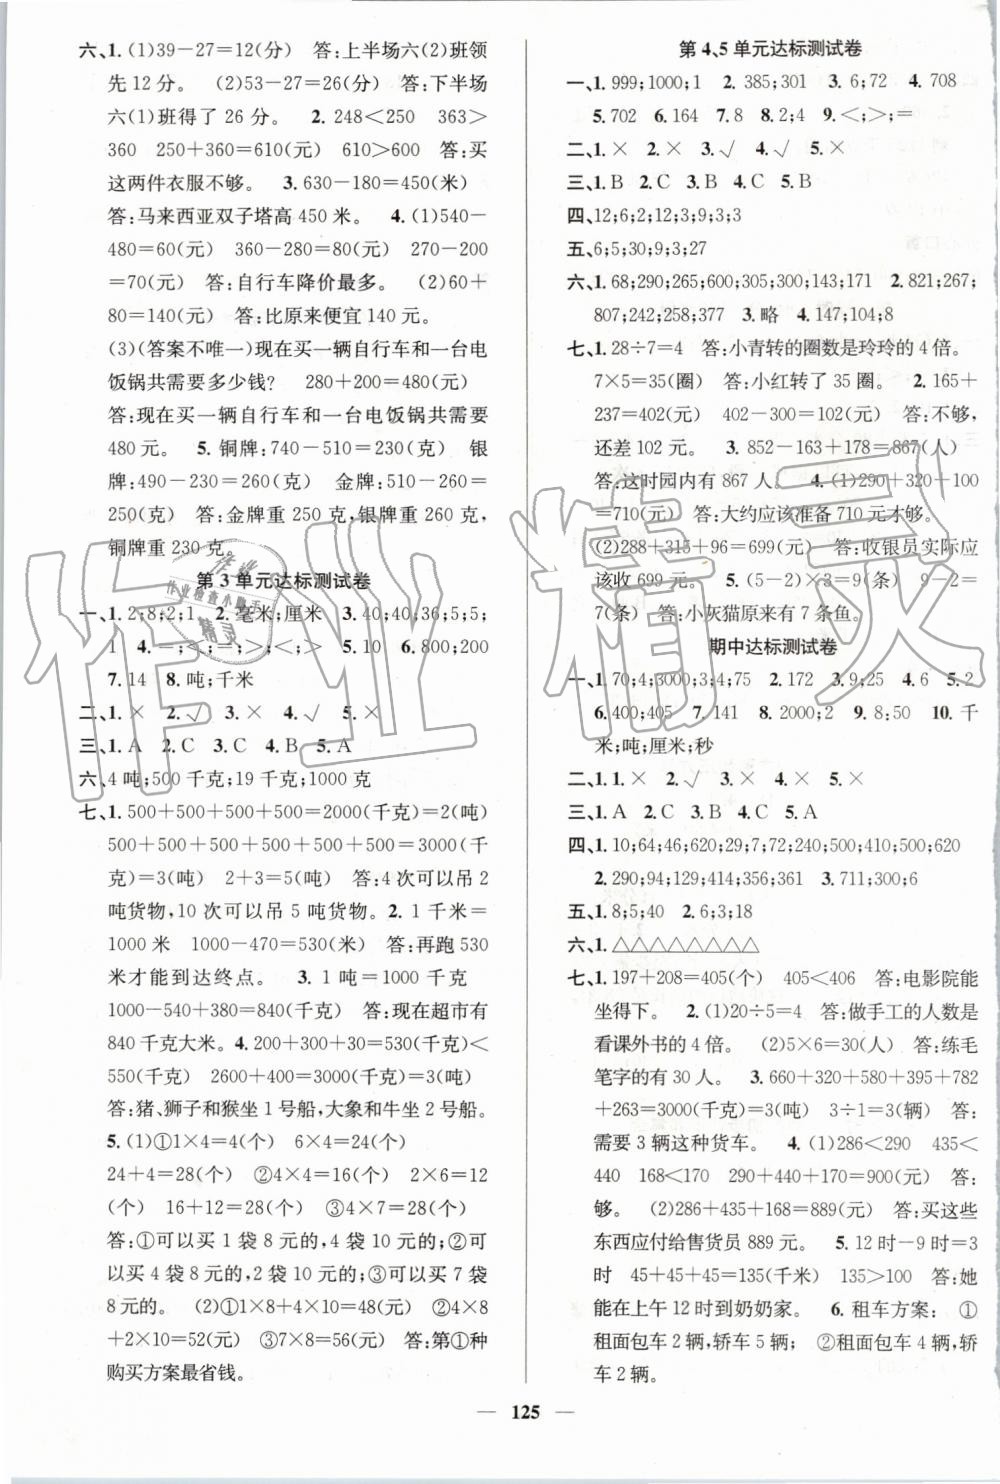 六、1. (1)39－27＝12(分)　答:上半场六(2)班领
先 12 分。　(2)53－27＝26(分)　答:下半场
六(1)班得了 26 分。　2. 248＜250　363＞
360　250＋360＝610(元)　610＞600　答:买
这两件衣服不够。　3. 630－180＝450(米)
答:马来西亚双子塔高 450 米。　4. (1)540－
480＝60(元)　360－280＝80(元)　270－200
＝70(元)　答:自行车降价最多。　(2)60＋
80＝140(元)　答:比原来便宜 140 元。
(3)(答案不唯一)现在买一辆自行车和一台电
饭锅共需要多少钱?　280＋200＝480(元)
答:现在买一辆自行车和一台电饭锅共需要
480 元。　5. 铜牌:740－510＝230(克)　银
牌:490－230＝260(克)　金牌:510－260＝
250(克)　答:金牌重 250 克,银牌重 260 克,
铜牌重 230 克。
第 3 单元达标测试卷
一、1. 2;8;2;1　2. 毫米;厘米　3. 40;40;36;5;5;
1　4. ＝;＜;＜;＞;＜;＞　5. 10　6. 800;200
7. 14　8. 吨;千米
二、1. ×　2. √　3. ×　4. √　5. ×
三、1. A　2. C　3. C　4. B　5. A
六、4 吨;500 千克;19 千克;1000 克
七、1. 500＋500＋500＋500＝2000(千克)＝2(吨)
500＋500＋500＋500＋500＋500＝3000(千
克)＝3(吨)　2＋3＝5(吨)　答:4 次可以吊 2
吨货物,10 次可以吊 5 吨货物。2. 1 千米＝
1000 米　1000－470＝530(米)　答:再跑 530
米才能到达终点。　3. 1 吨＝1000 千克
1000－540＋380＝840(千克)　答:现在超市有
840 千克大米。4. 200＋300＋30＝530(千克)＜
550(千克)　2600＋400＝3000(千克)＝3(吨)
答:猪、狮子和猴坐 1 号船,大象和牛坐 2 号船。
5. (1)①1×4＝4(个)　6×4＝24(个)
24＋4＝28(个)　②4×4＝16(个)　2×6＝12
(个)　16＋12＝28(个)　③4×7＝28(个)
答:①可以买 1 袋 8 元的,4 袋 10 元的;②可
以买 4 袋 8 元的,2 袋 10 元的;③可以买 7 袋
8 元的。　(2)①1×8＋4×10＝48(元)　②4×8
＋2×10＝52(元)　③7×8＝56(元)　答:第①种
购买方案最省钱。
第 4、5 单元达标测试卷
一、1. 999;1000;1　2. 385;301　3. 6;72　4. 708
5. 702　6. 164　7. 8　8. 2;4　9. ＜;＞;＝
二、1. ×　2. ×　3. √　4. √　5. ×
三、1. B　2. C　3. B　4. C　5. B
四、12;6;2;12;3;9;3;3
五、6;5;30;9;3;27
六、1. 68;290;265;600;305;300;143;171　2. 821;267;
807;242;258;377　3. 略　4. 147;104;8
七、1. 28÷7＝4　答:小青转的圈数是玲玲的 4 倍。
7×5＝35(圈)　答:小红转了 35 圈。　2. 165＋
237＝402(元)　402－300＝102(元)　答:不够,
还差 102 元。　3. 852－163＋178＝867(人)
答:这时园内有 867 人。　4. (1)290＋320＋100
＝710(元)　答:大约应该准备 710 元才够。
(2)288＋315＋96＝699(元)　答:收银员实际应
该收 699 元。　5. (5×3＋3)÷2＝9(条)　9－2＝
7(条)　答:小灰猫原来有 7 条鱼。
期中达标测试卷
一、1. 70;4;3000;3;4;75　2. 172　3. 9;25　4. 6　5. 2
6. 400;405　7. 141　8. 2000;2　9. 8:50　10. 千
米;吨;厘米;秒
二、1. ×　2. √　3. ×　4. ×　5. ×
三、1. A　2. C　3. C　4. B　5. A
四、1. 10;64;46;620;29;7;72;240;500;410;500;620
2. 290;94;128;414;356;361　3. 711;300;6
五、1. 8;5;40　2. 6;3;18
六、1. △△△△△△△△
七、1. 197＋208＝405(个)　405＜406　答:电影院能
坐得下。　2. (1)20÷5＝4　答:做手工的人数是
看课外书的 4 倍。　(2)5×6＝30(人)　答:练毛
笔字的有 30 人。　3. 660＋320＋580＋395＋782
＋263＝3000(千克)＝3(吨)　3÷1＝3(辆)　答:
需要 3 辆这种货车。　4. (1)286＜290　435＜
440　168＜170　290＋440＋170＝900(元)　答:
够。　(2)286＋435＋168＝889(元)　答:买这些
东西应付给售货员 889 元。　5. 12 时－9 时＝3
时　45＋45＋45＝135(千米)　135＞100　答:她
能在上午 12 时到奶奶家。　6. 租车方案:　①
租面包车 2 辆,轿车 5 辆;　②租面包车 4 辆,轿
车 2 辆。
作业精灵
作业
作业检查小助手
精灵
125